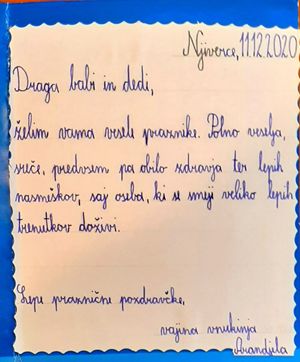 Njiverce, 11.12.2020
Draga babi in dedi,
želim vama vesele praznike. Polno veselja,
sreče, predvsem pa obilo zdravja ter lepih
nasmeškov, saj oseba, ki se smeji veliko lepih
trenutkov doživi.
Lepe praznične pozdravčke,
vajina vnukinja
Arandjela